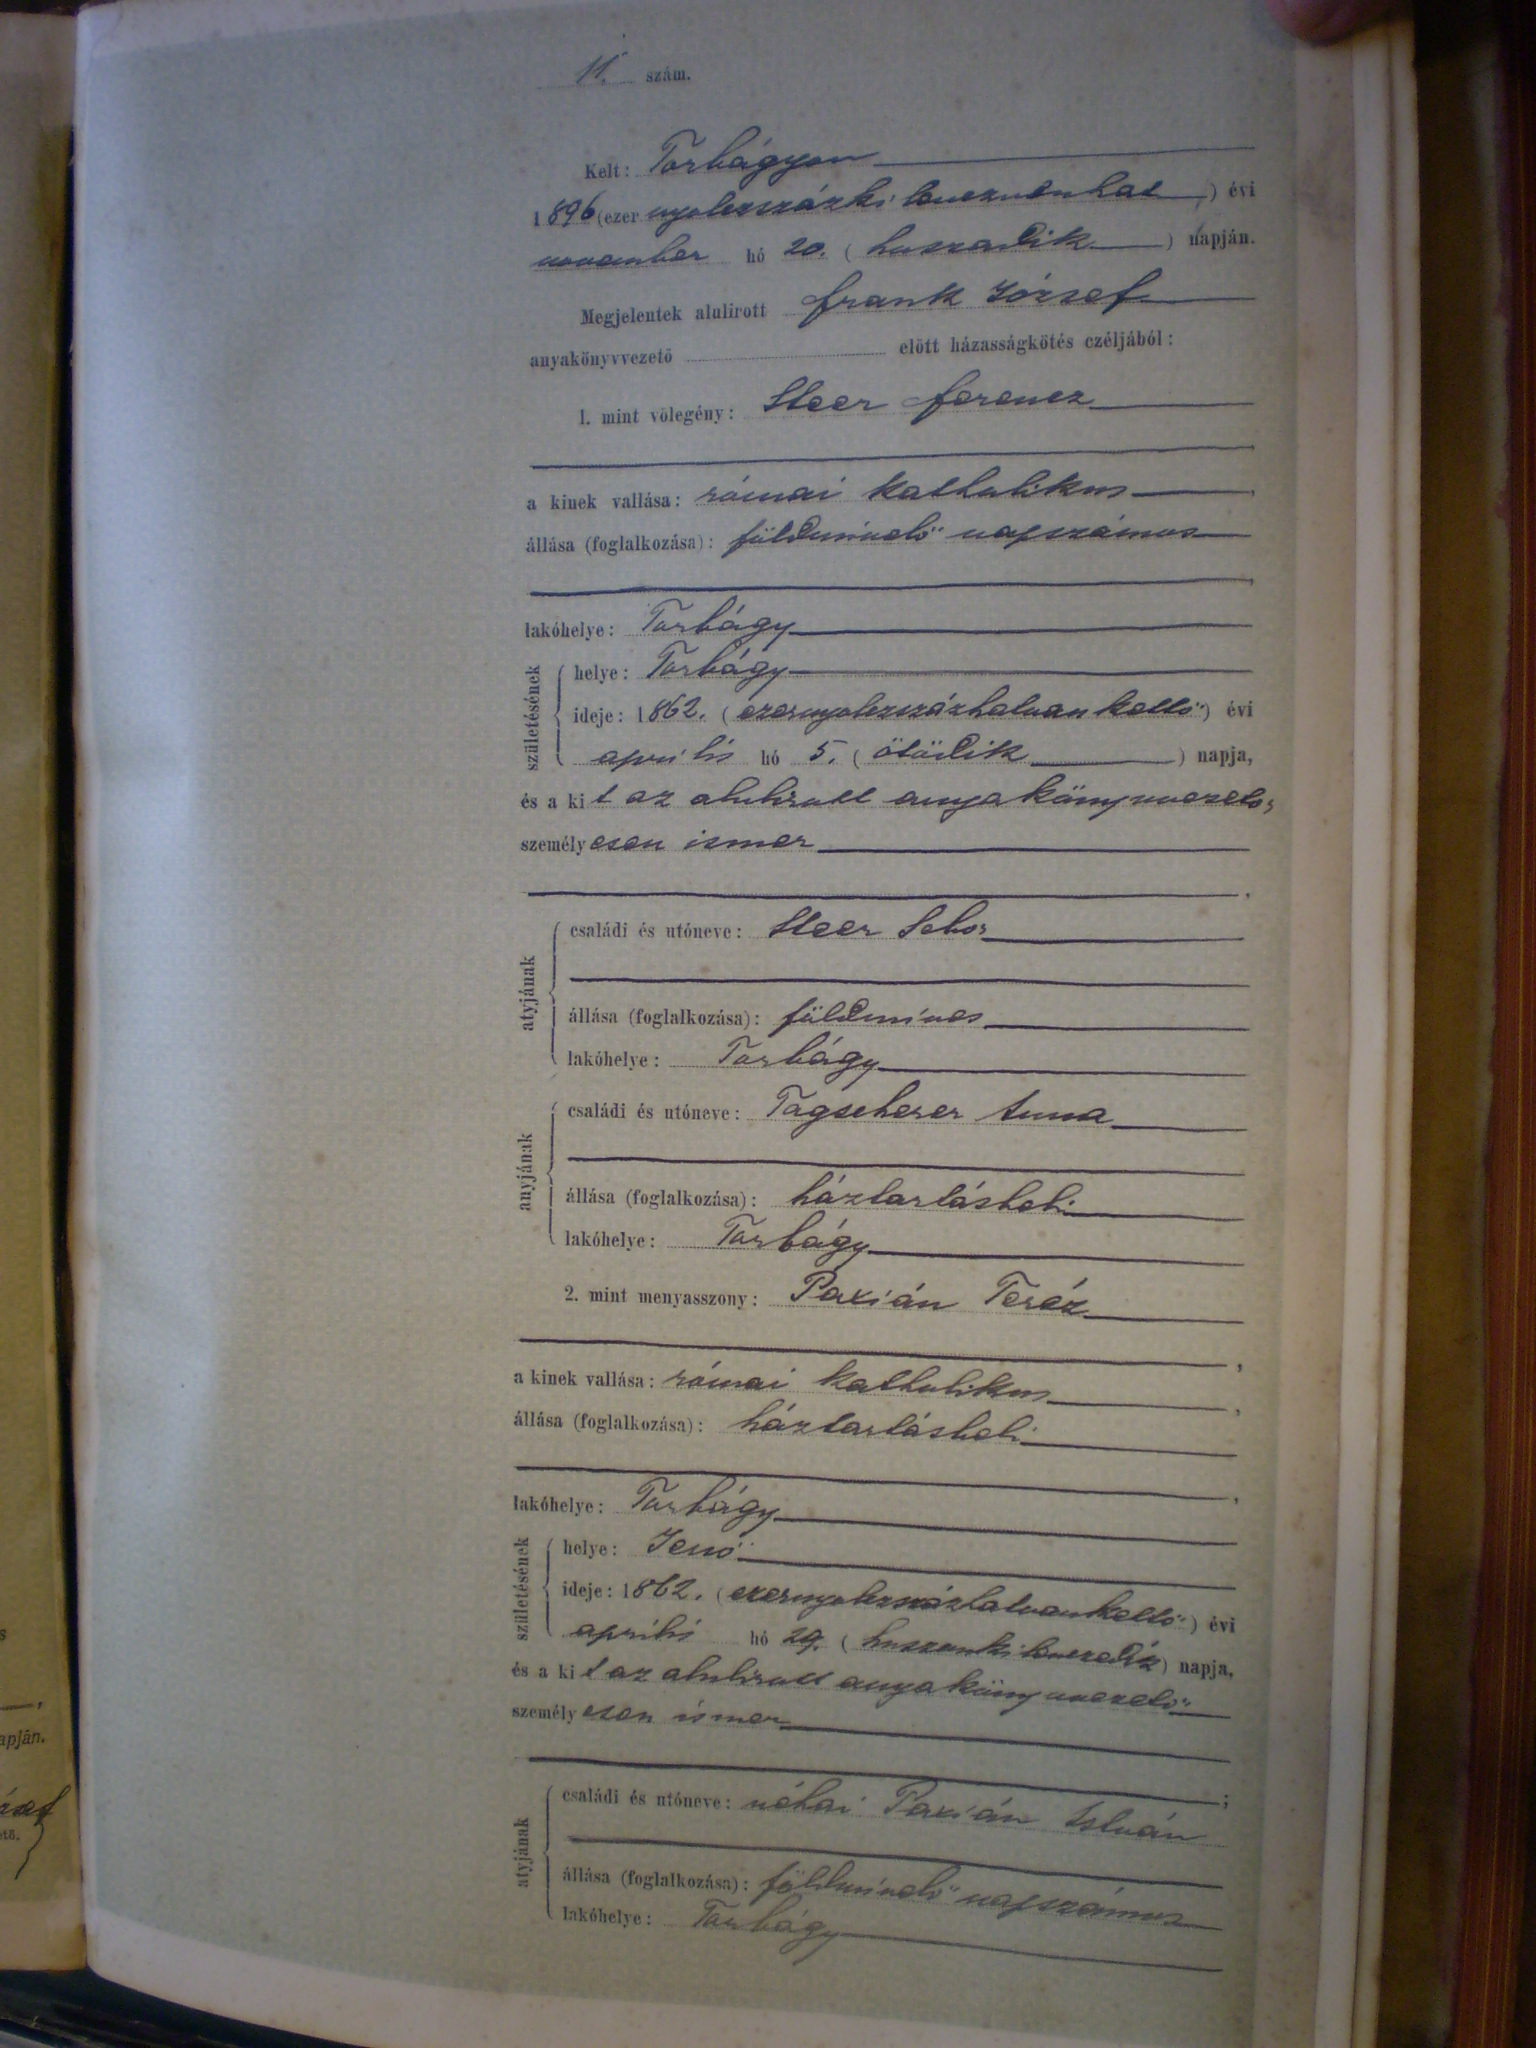 11. szám.
Kelt: Torbágyon
1896 (ezer nyolczszázkilenczvenhat) évi
november hó 20. (huszadik) napján.
Megjelentek alulirott Frank József
anyakönyvvezető előtt házasságkötés czéljából:
1. mint vőlegény: Steer Ferencz
a kinek vallása: római katholikus,
állása (foglalkozása): földmívelő napszámos,
lakóhelye: Torbágy
születésének
helye: Torbágy
ideje: 1862. (ezernyolczszázhatvankettő) évi
április hó 5. (ötödik) napja,
és a kit az alulirott anyakönyvvezető,
személyesen ismer
,
atyjának
családi és utóneve: Steer
állása (foglalkozása): földmíves
lakóhelye: Torbágy
anyjának
családi és utóneve: Tagscherer Anna
állása (foglalkozása): háztartásbeli
lakóhelye: Torbágy
2. mint menyasszony: Paxián Teréz
,
a kinek vallása: római katholikus,
állása (foglalkozása): háztartásbeli
,
lakóhelye: Torbágy
születésének
helye: Jenő
ideje: 1862. (ezernyolczszázhatvankettő) évi
április hó 29. (huszonkilenczedik) napja,
és a kit az alulirott anyakönyvvezető
személyesen ismer
;
atyjának
családi és utóneve: néhai Paxián István
állása (foglalkozása): földmívelő napszámos
lakóhelye: Torbágy
apján.
ető.